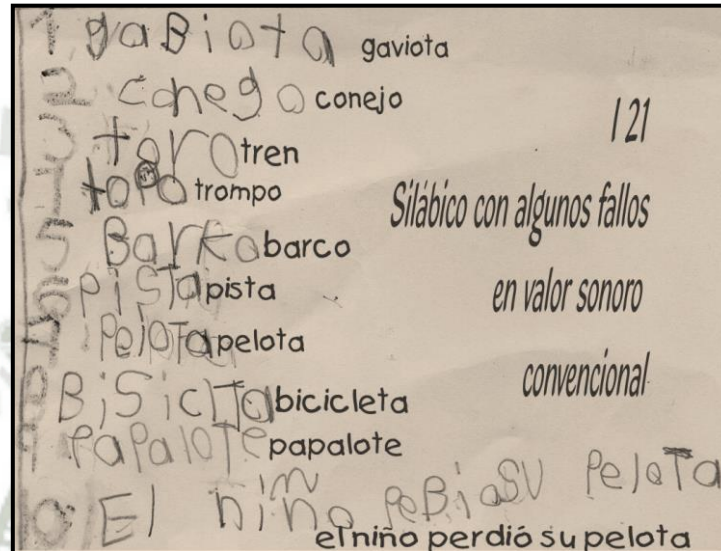 1 gaBiota gaviota
2 conego conejo
3 toro tren
4 toro trompo
5 Barko barco
6 pista pista
7 Pelota pelota
8 BiSiclTa bicicleta
9 PaPaloTe papalote
10 El niño PeBio SU PeloTa
el niño perdió su pelota
I 21
Silábico con algunos fallos
en valor sonoro
convencional